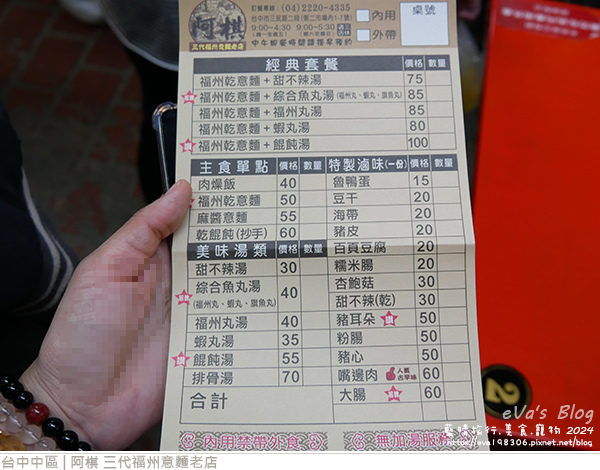 訂餐專線:(04)2220-4335
台中市三民路二段(第二市場內1-7號)
9:00~4:30 9:00~5:30
內用
外帶
桌號
阿棋
三代福州意麵老店
經典套餐 價格 數量
福州乾意麵+甜不辣湯 75
福州乾意麵+綜合魚丸湯(福州丸、蝦丸、旗魚丸) 85
福州乾意麵+福州丸湯 85
福州乾意麵+蝦丸湯 80
福州乾意麵+餛飩湯 100
主食單點 價格 數量
肉燥飯 40
福州乾意麵 50
麻醬意麵 55
乾餛飩(抄手) 60
美味湯類 價格 數量
甜不辣湯 30
綜合魚丸湯 40
(福州丸、蝦丸、旗魚丸)
福州丸湯 40
蝦丸湯 35
餛飩湯 55
排骨湯 70
合計
特製滷味(一份) 價格 數量
魯鴨蛋 15
豆干 20
海帶 20
豬皮 20
百頁豆腐 20
糯米腸 20
杏鮑菇 30
甜不辣(乾) 30
豬耳朵 50
粉腸 50
豬心 50
嘴邊肉 人氣古早味 60
大腸 60
內用禁帶外食
無加湯服務
2
eva's Blog
藝時旅行.美食.寵物 2024
https://eva198306.pixnet.net/blog
台中中區 | 阿棋 三代福州意麵老店